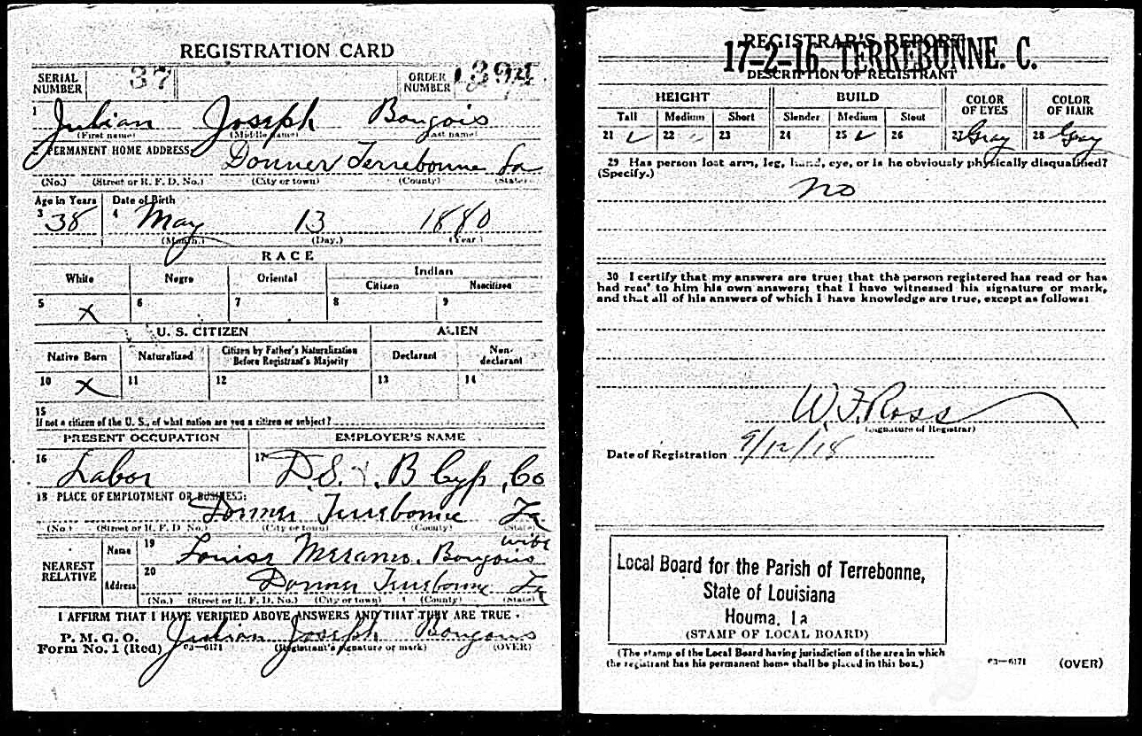 REGISTRATION CARD
SERIAL NUMBER 37
ORDER NUMBER 1394
1 Julian Joseph Bougois
(First name) (Middle name) Last name)
2 PERMANENT HOME ADDRESS: Donner Terrebonne La
(No.) (Street or R. F. D. No.) (City or town) (County) (State)
Age in Years Date of Birth
3 38 4 May 13 1880
(Month.) (Day.) (Year)
RACE
White Negro Oriental Indian
Citizen Noncitizen
5 X 6 7 8 9
U. S. CITIZEN ALIEN
Native Born Naturalized Citizen by Father's Naturalization Before Registrant's Majority Declarant Non-declarant
10 X 11 12 13 14
15
If not a citizen of the U. S., of what nation are you a citizen or subject?
PRESENT OCCUPATION EMPLOYER'S NAME
16 Labor 17 D.S. & B Cyp, Co
18 PLACE OF EMPLOYMENT OR BUSINESS:
Donner Terrebonne La
(No.) (Street or R. F. D. No.) (City or town) (County) (State)
wife
NEAREST RELATIVE
Name 19 Louise Bougois
Address 20 Donner Terrebonne La
(No.) (Street or R. F. D. No.) (City or town) (County) (State)
I AFFIRM THAT I HAVE VERIFIED ABOVE ANSWERS AND THAT THEY ARE TRUE.
P. M. G. O.
Form No. 1 (Red) 03—6171 Julian Joseph Bougois
(Registrant's signature or mark) (OVER)
REGISTRAR'S REPORT
17-2-16. TERREBONNE. C.
DESCRIPTION OF REGISTRANT
HEIGHT BUILD COLOR OF EYES COLOR OF HAIR
Tall Medium Short Slender Medium Stout
21 ✓ 22 23 24 25 ✓ 26 27 Gray 28 Gray
29 Has person lost arm, leg, hand, eye, or is he obviously physically disqualified?
(Specify.)
no
30 I certify that my answers are true; that the person registered has read or has
had read to him his own answers; that I have witnessed his signature or mark,
and that all of his answers of which I have knowledge are true, except as follows:
W.F. Ross
(Signature of Registrar)
Date of Registration 9/12/18
Local Board for the Parish of Terrebonne,
State of Louisiana
Houma. La
(STAMP OF LOCAL BOARD)
(The stamp of the Local Board having jurisdiction of the area in which
the registrant has his permanent home shall be placed in this box.)
03—6171 (OVER)